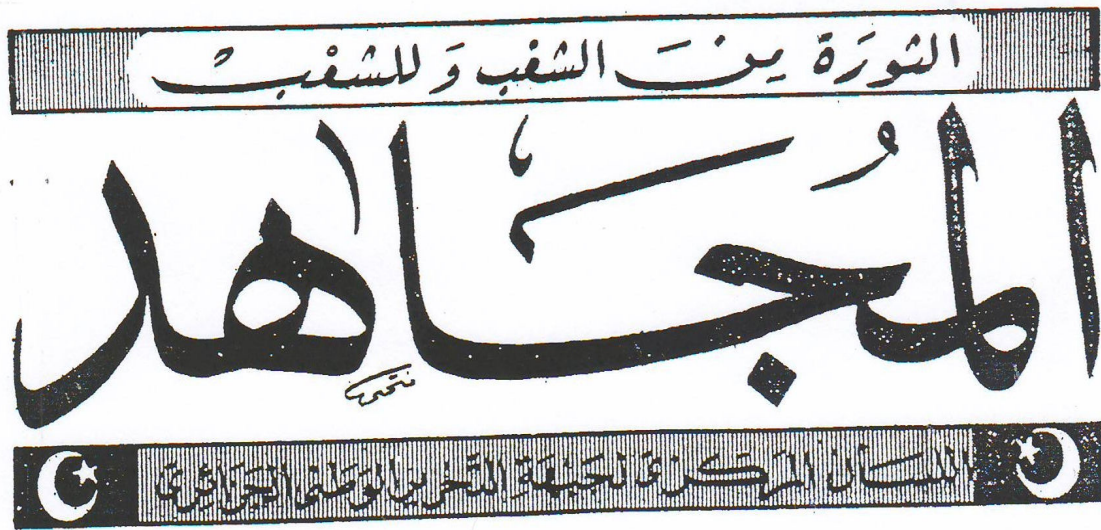 الثورة من الشعب وللشعب
المجاهد
اللسان المركزي لجبهة التحرير الوطني الجزائري